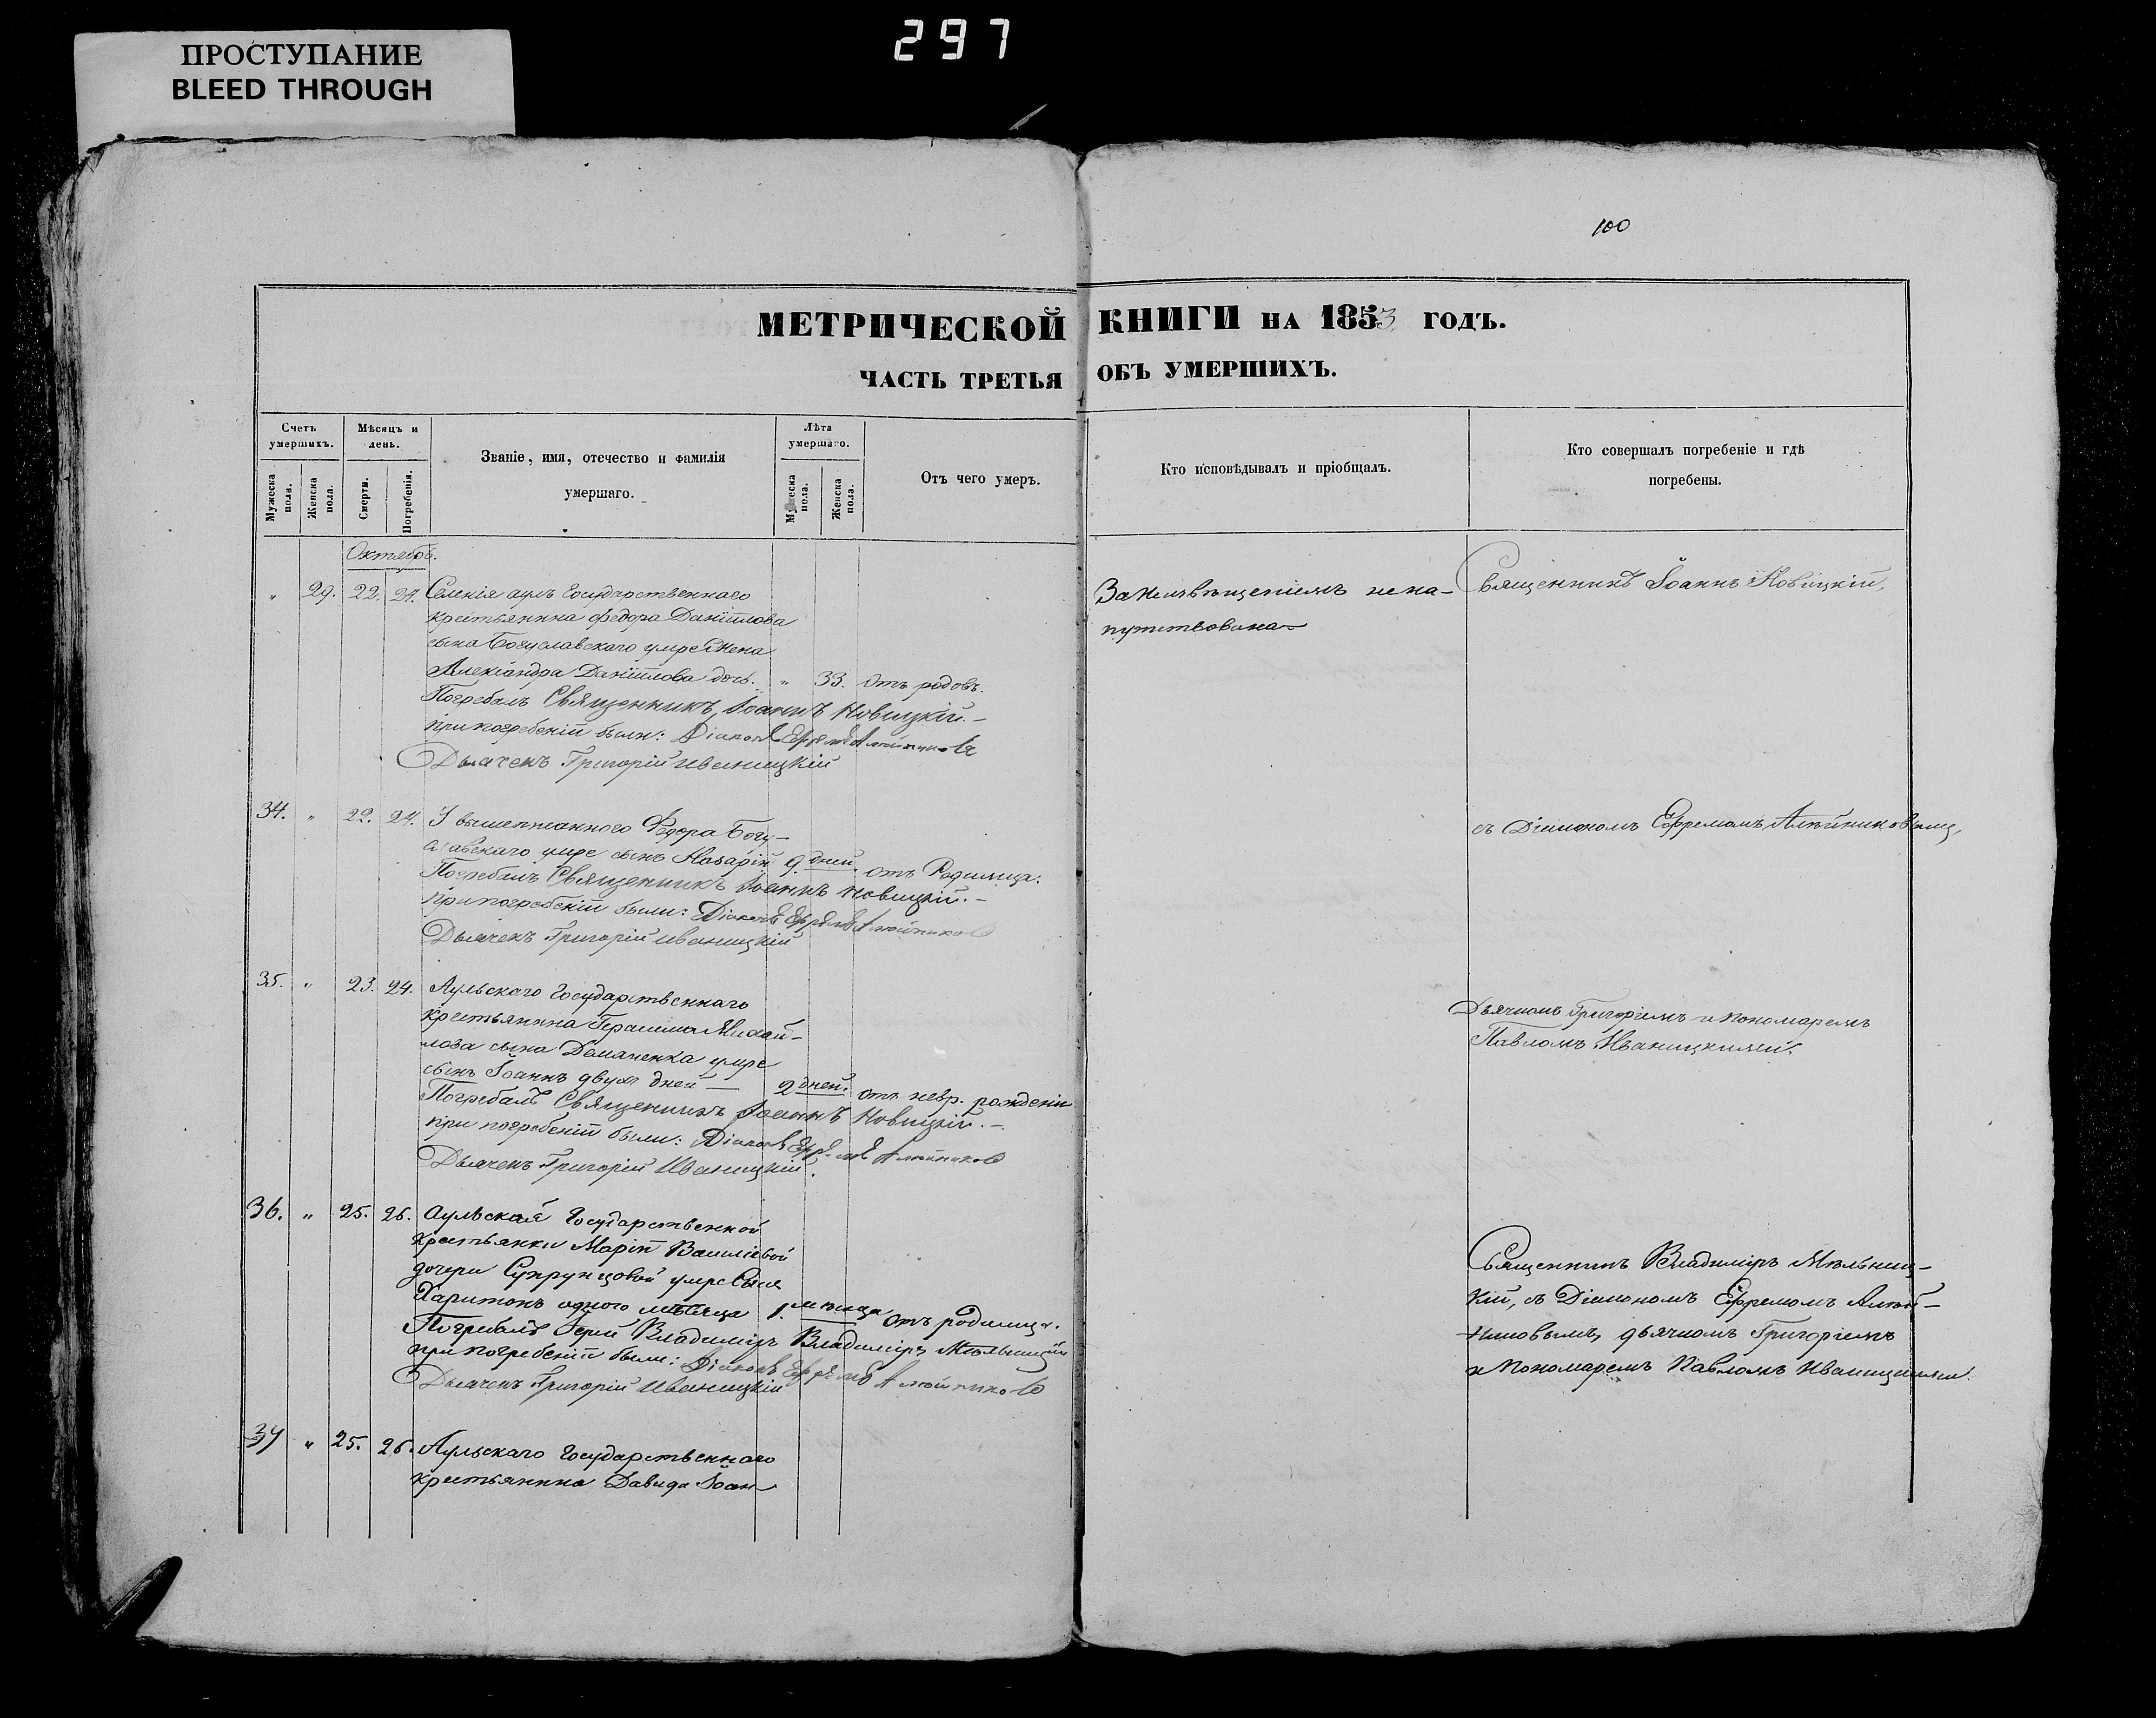 ПРОСТУПАНИЕ
BLEED THROUGH
297
100
МЕТРИЧЕСКОЙ КНИГИ НА 1853 ГОДЪ.
ЧАСТЬ ТРЕТЬЯ ОБЪ УМЕРШИХЪ.
Счетъ умершихъ.
Мужеска пола.
Женска пола.
Мѣсяцъ и день.
Смерти.
Погребенія.
Званіе, имя, отечество и фамилія
умершаго.
Лѣта умершаго.
Мужеска пола.
Женска пола.
Отъ чего умеръ.
Кто исповѣдывалъ и пріобщалъ.
Кто совершалъ погребеніе и гдѣ
погребены.
Октябрь.
„ 29. 22. 24. Селенія аулъ Государственнаго
крестьянина Федора Даніилова
сына Богуславскаго умре жена
Александра Даніилова дочь. „ 33. Отъ родовъ.
Погребалъ Священникъ Іоаннъ Новицкій.—
при погребеніи были: Діаконъ Ефремъ Алейниковъ
Дьячекъ Григорій Иваницкій
За неизвѣщеніемъ нена-
путствована
Священникъ Іоаннъ Новицкій,
34. „ 22. 24. У вышеписанного Федора Богу-
славскаго умре сынъ Назарій 9. дней. отъ Родимца.
Погребалъ Священникъ Іоаннъ Новицкій.—
при погребеніи были: Діаконъ Ефремъ Алейниковъ
Дьячекъ Григорій Иваницкій
съ Діакономъ Ефремомъ Алейниковымъ,
35. „ 23. 24. Аульскаго Государственнаго
крестьянина Герасима Михай-
лова сына Демаченка умре
сынъ Іоаннъ двухъ дней — 2 дней. отъ невр. рожденія
Погребалъ Священникъ Іоаннъ Новицкій.—
при погребеніи были: Діаконъ Ефремъ Алейниковъ
Дьячекъ Григорій Иваницкій.
Дьячкомъ Григоріемъ и пономаремъ
Павломъ Иваницкими.
36. „ 25. 26. Аульской Государственной
крестьянки Маріи Василіевой
дочери Супрунцовой умре сынъ
Харитонъ одного мѣсяца 1. мѣсяца отъ родимца.
Погребалъ Іерей Владиміръ Владиміръ Мѣльницкій
при погребеніи были: Діаконъ Ефремъ Алейниковъ
Дьячекъ Григорій Иваницкій
Священникъ Владиміръ Мѣльниц-
кій, съ Діакономъ Ефремомъ Алей-
никовымъ, дьячкомъ Григоріемъ
и пономаремъ Павломъ Иваницкими.
37 „ 25. 26. Аульскаго Государственнаго
крестьянина Давида Іоан-